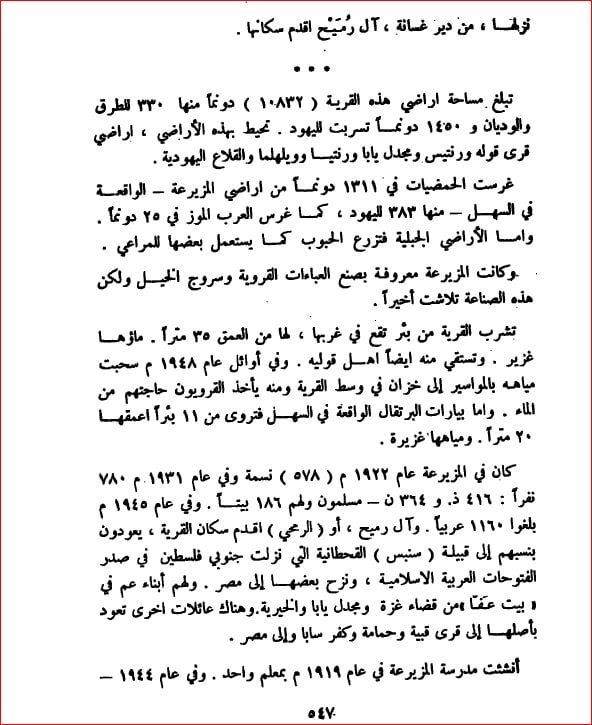 نزلهــا ، من دير غسانة ، آل رُمَيْح اقدم سكانها .
• • •
تبلغ مساحة اراضي هذه القرية ( ١٠٨٣٢ ) دونماً منها ٣٣٠ للطرق
والوديان و ١٤٥٠ دونمــاً تسربت لليهود . تحيط بهذه الأراضي ، اراضي
قرى قوله ورنتيس ومجدل يابا ورنتيــا وويلهلما والقلاع اليهودية .
غرست الحمضيات في ١٣١١ دونماً من اراضي المزيرعة – الواقعــة
في السهــل – منها ٣٨٣ لليهود ، كمــا غرس العرب الموز في ٢٥ دونماً .
وامــا الأراضي الجبلية فتزرع الحبوب كمــا يستعمل بعضها للمراعي .
وكانت المزيرعة معروفة بصنع العباءات القروية وسروج الخيــل ولكن
هذه الصناعة تلاشت أخيراً .
تشرب القرية من بئر تقع في غربها ، لها من العمق ٣٥ متراً . ماؤهــا
غزير . وتستقي منه ايضاً اهــل قوليه . وفي أوائل عام ١٩٤٨ م سحبت
مياهــه بالمواسير إلى خزان في وسط القرية ومنه يأخذ القرويون حاجتهم من
الماء . واما بيارات البرتقال الواقعة في السهــل فتروى من ١١ بئراً اعمقهــا
٢٠ متراً . ومياهها غزيرة .
كان في المزيرعة عام ١٩٢٢ م ( ٥٧٨ ) نسمة وفي عام ١٩٣١ م ٧٨٠
نفراً : ٤١٦ ذ. و ٣٦٤ ن – مسلمون ولهم ١٨٦ بيتــاً . وفي عام ١٩٤٥ م
بلغوا ١١٦٠ عربياً . وآل رميح ، أو ( الرمحي ) اقــدم سكان القرية ، يعودون
بنسبهم إلى قبيلــة ( سنبس ) القحطانية التي نزلت جنوبي فلسطين في صدر
الفتوحات العربية الاسلاميــة ، ونزح بعضهــا إلى مصر . ولهم أبناء عم في
« بيت عَفّــا »من قضاء غزة ومجدل يابا والخيرية.وهناك عائلات اخرى تعود
بأصلهــا إلى قرى قبية وحمامة وكفر سابا وإلى مصر .
أنشئت مدرسة المزيرعة في عام ١٩١٩ م بمعلم واحد . وفي عام ١٩٤٤ –
٥٤٧